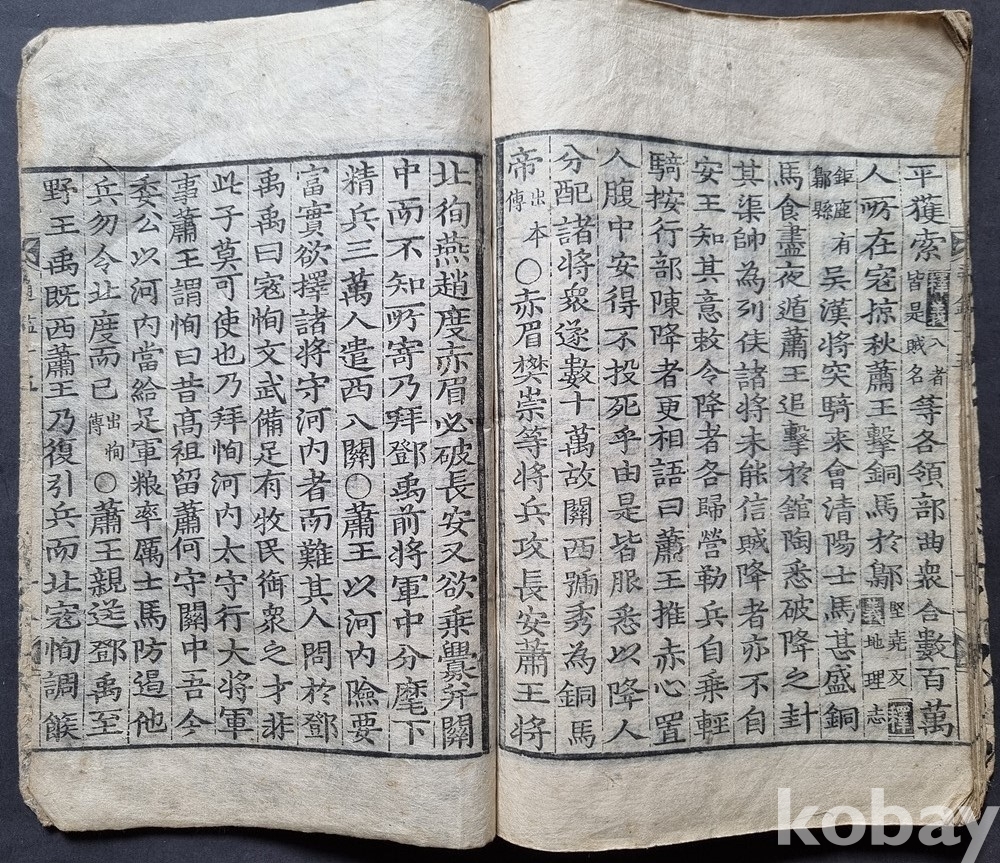 平獲索八者皆是賊名等各領部曲衆合數百萬
人所在寇掠秋蕭王擊銅馬於鄡堅堯反地理志
鉅鹿有鄡縣吳漢將突騎來會清陽士馬甚盛銅
馬食盡夜遁蕭王追擊於舘陶悉破降之封
其渠帥為列侯諸將未能信賊降者亦不自
安王知其意敕令降者各歸營勒兵自乗輕
騎按行部陳降者更相語曰蕭王推赤心置
人腹中安得不投死乎由是皆服悉以降人
分配諸將衆遂數十萬故關西號秀為銅馬
帝出本傳○赤眉樊崇等將兵攻長安蕭王將
北徇燕趙度赤眉必破長安又欲乗釁并關
中而不知所寄乃拜鄧禹前將軍中分麾下
精兵三萬人遣西入關○蕭王以河内險要
富實欲擇諸將守河内者而難其人問於鄧
禹禹曰寇恂文武備足有牧民御衆之才非
此子莫可使也乃拜恂河内太守行大將軍
事蕭王謂恂曰昔高祖留蕭何守關中吾今
委公以河内當給足軍粮率厲士馬防遏他
兵勿令北度而已出恂傳○蕭王親送鄧禹至
野王禹既西蕭王乃復引兵而北寇恂調餱
kobay